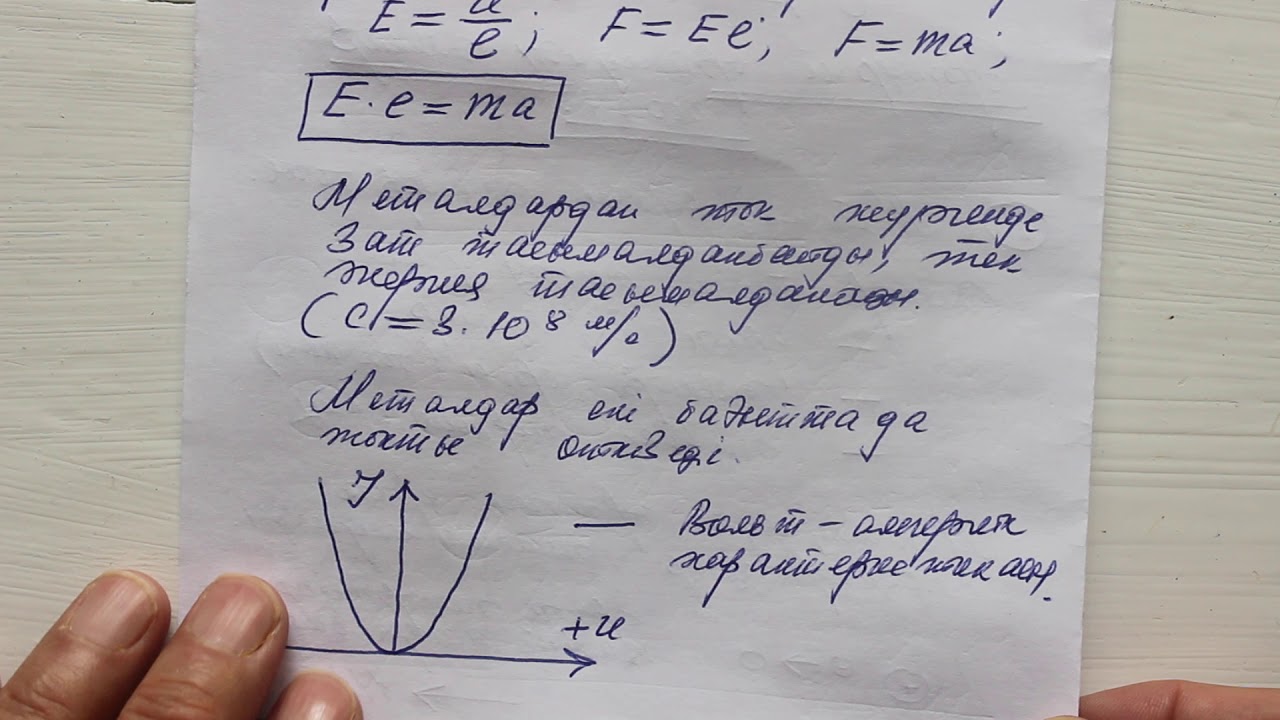 E = u/e; F = Ee; F = ma;
E·e = ma
Металдардан ток жүргенде
Зат тасымалданбайды, тек
энергия тасымалданады.
(C = 3·10⁸ м/с)
Металдар екі бағытта да
токты өткізеді.
I
Вольт – амперлік
характеристикасы.
+u